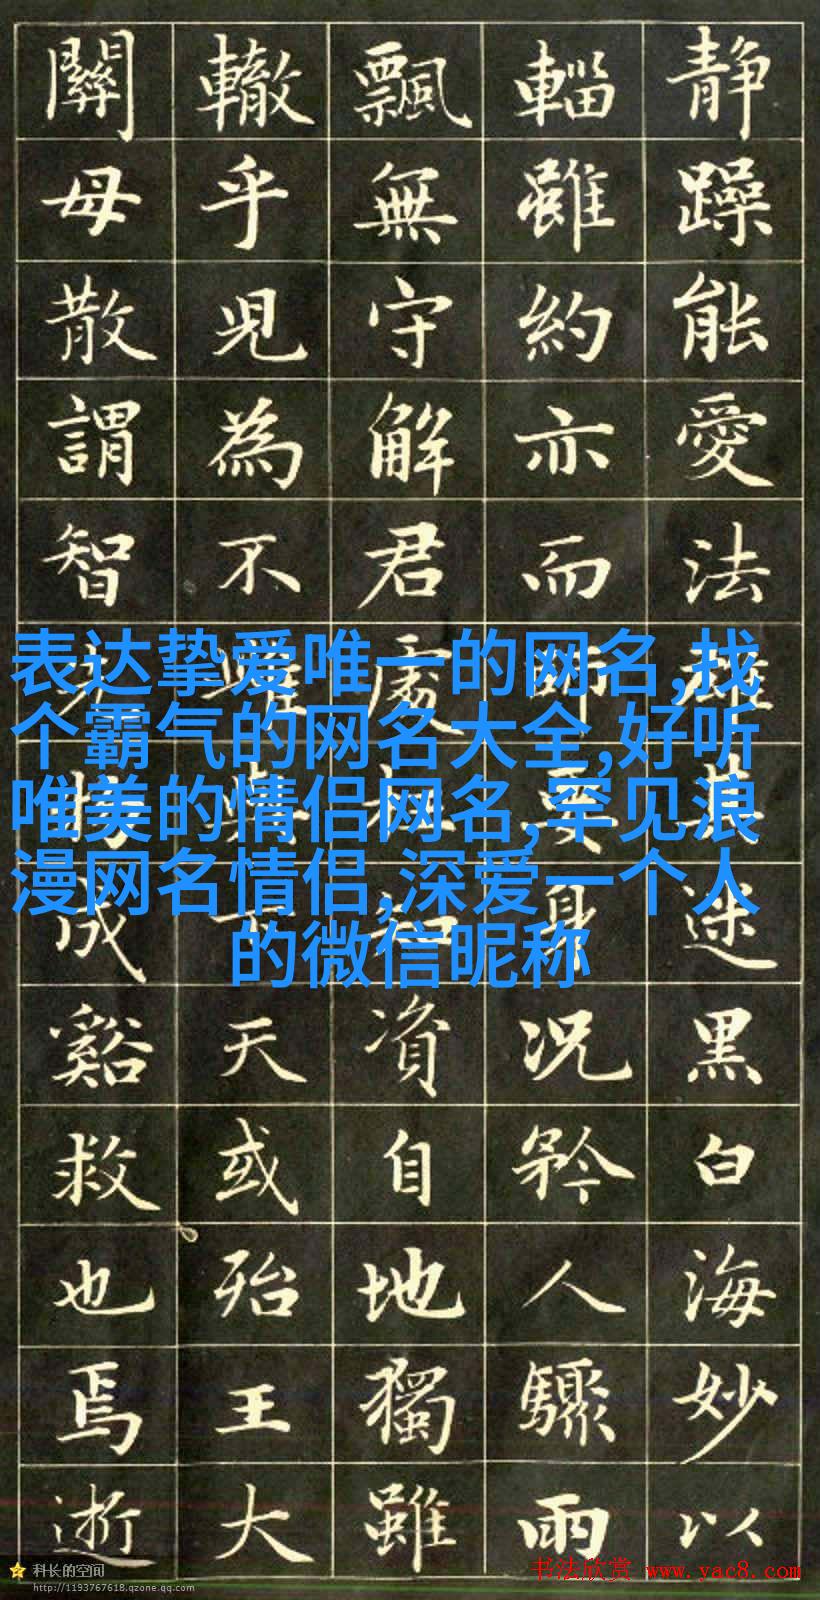 静躁能愛法其迷黑白海妙以
輜雖約亦而師要身况矜人驟雨
飄無守解君處知資自地獨雖
轍乎児為不與下天或殆王大
關母散謂智成谿救也焉逝
表达挚爱唯一的网名,找
个霸气的网名大全,好听
唯美的情侣网名,罕见浪
漫网名情侣,深爱一个人
的微信昵称
科长的空间
http://1193767618.qzone.qq.com
书法欣赏 www.yac8.com